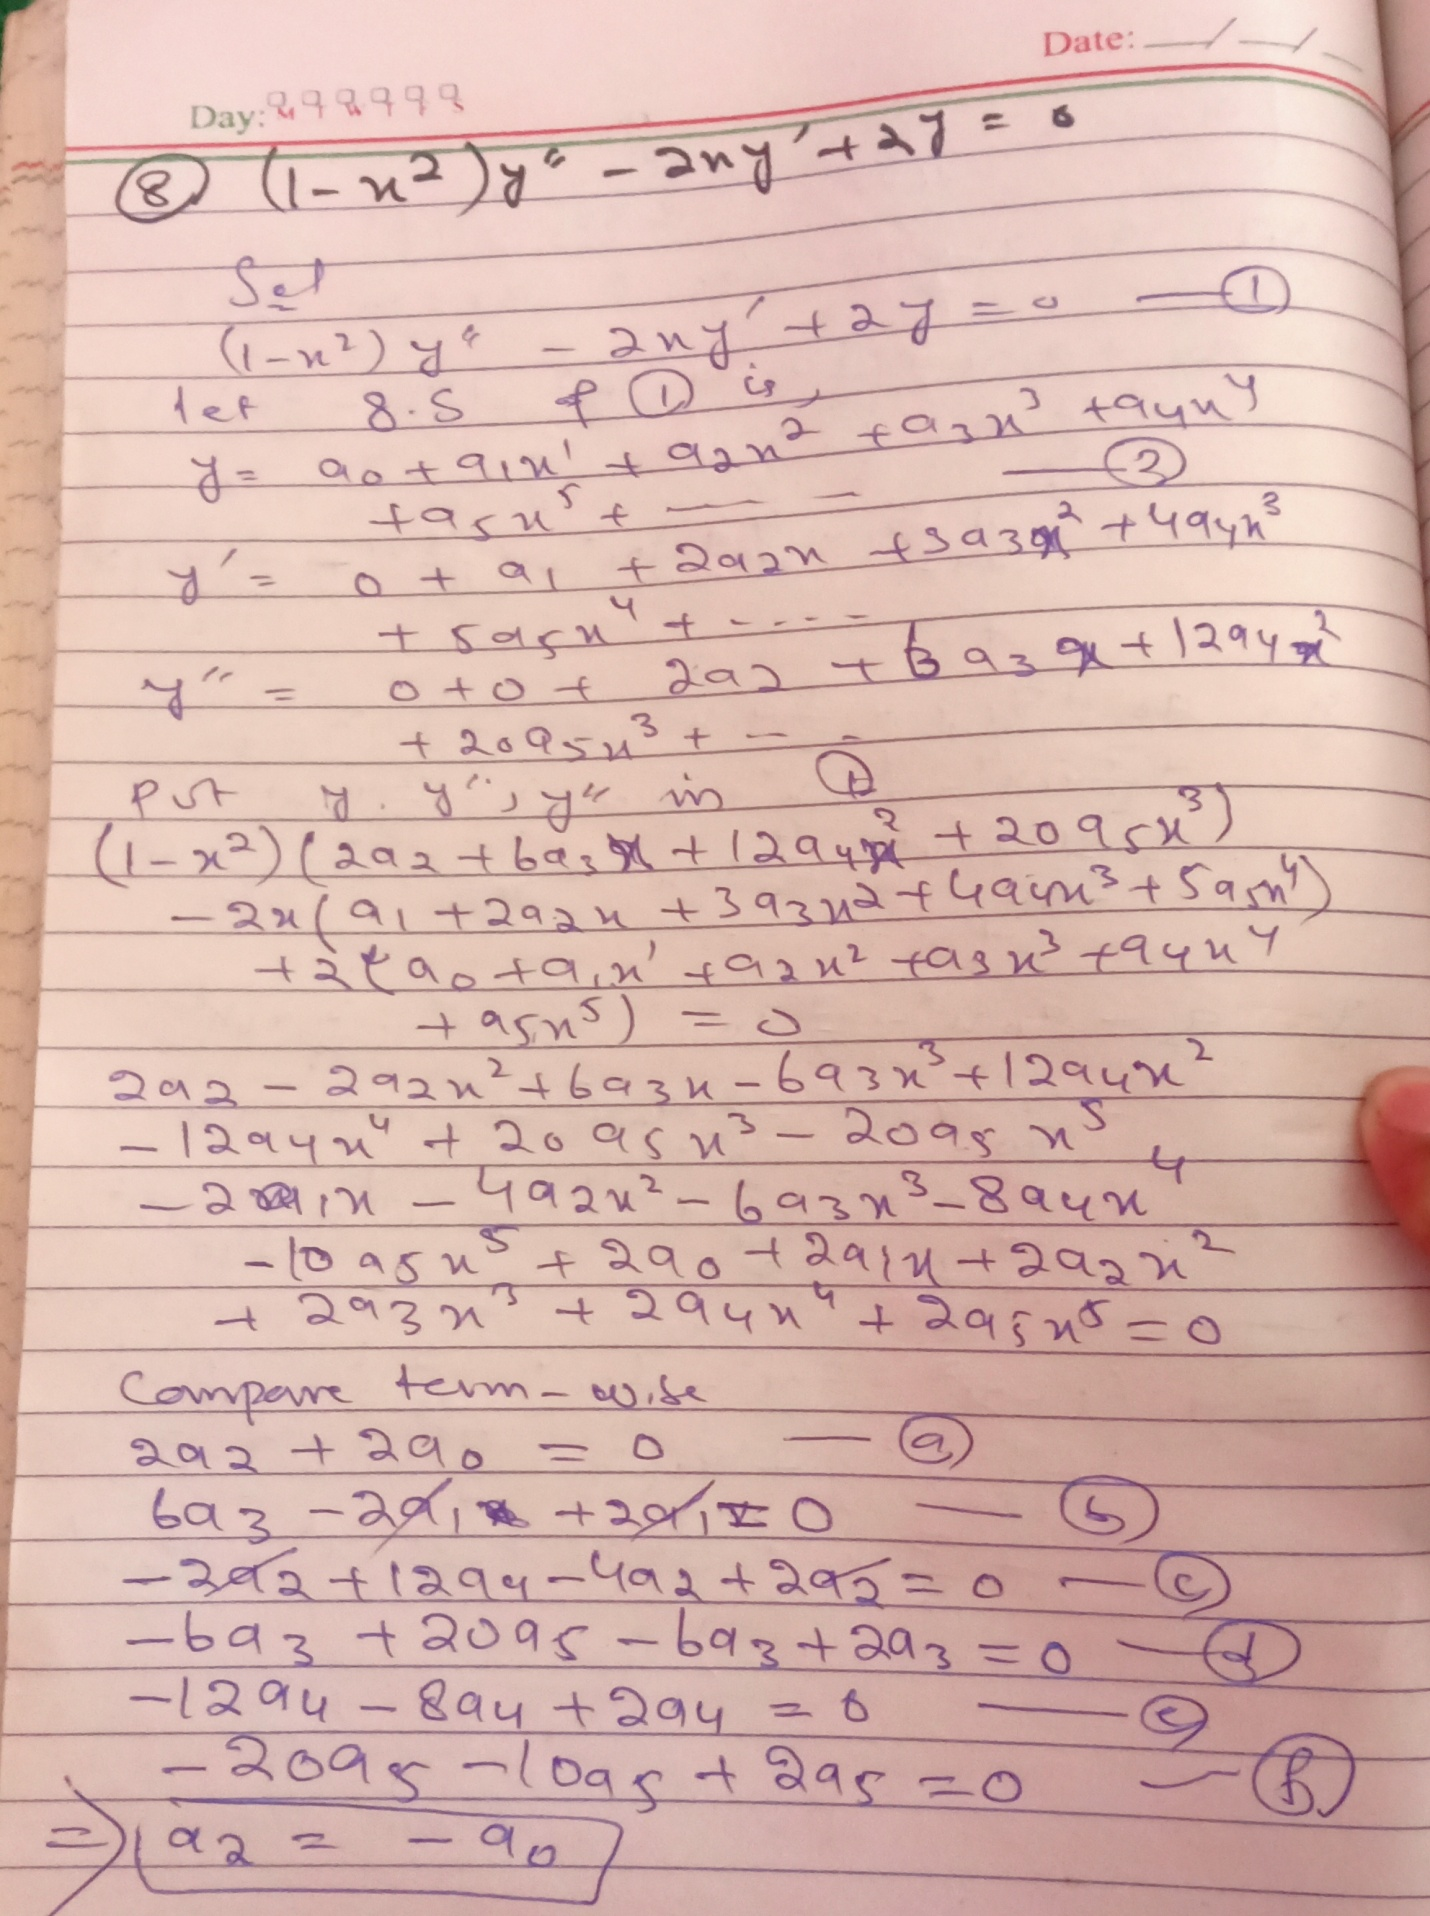 Date: __/__/__
Day:
⑧ (1-x²)y" - 2xy' + 2y = 0
Sol
(1-x²)y" - 2xy' + 2y = 0 — ①
let g.s of ① is,
y = a₀ + a₁x¹ + a₂x² + a₃x³ + a₄x⁴
+ a₅x⁵ + — — — ②
y' = 0 + a₁ + 2a₂x + 3a₃x² + 4a₄x³
+ 5a₅x⁴ + ----
y" = 0+0+ 2a₂ + 6a₃x + 12a₄x²
+ 20a₅x³ + — -
Put y. y", y" in ①
(1-x²)(2a₂ + 6a₃x + 12a₄x² + 20a₅x³)
- 2x(a₁ + 2a₂x + 3a₃x² + 4a₄x³ + 5a₅x⁴)
+ 2(a₀ + a₁x¹ + a₂x² + a₃x³ + a₄x⁴
+ a₅x⁵) = 0
2a₂ - 2a₂x² + 6a₃x - 6a₃x³ + 12a₄x²
- 12a₄x⁴ + 20a₅x³ - 20a₅x⁵
- 2a₁x - 4a₂x² - 6a₃x³ - 8a₄x⁴
- 10a₅x⁵ + 2a₀ + 2a₁x + 2a₂x²
+ 2a₃x³ + 2a₄x⁴ + 2a₅x⁵ = 0
Compare term-wise
2a₂ + 2a₀ = 0 — ⓐ
6a₃ - 2a₁ + 2a₁ = 0 — ⓑ
-2a₂ + 12a₄ - 4a₂ + 2a₂ = 0 — ⓒ
-6a₃ + 20a₅ - 6a₃ + 2a₃ = 0 — ⓓ
-12a₄ - 8a₄ + 2a₄ = 0 — ⓔ
-20a₅ - 10a₅ + 2a₅ = 0 — ⓕ
⇒ a₂ = - a₀